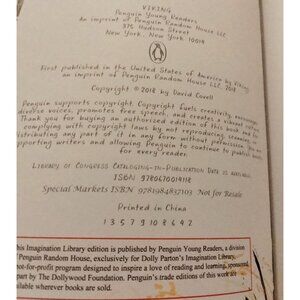 VIKING
Penguin Young Readers
An imprint of Penguin Random House LLC
375 Hudson Street
New York, New York 10014
First published in the United States of America by Viking,
an imprint of Penguin Random House LLC, 2018
Copyright © 2018 by David Covell
Penguin supports copyright. Copyright fuels creativity, encourages
diverse voices, promotes free speech, and creates a vibrant culture.
Thank you for buying an authorized edition of this book and for
complying with copyright laws by not reproducing, scanning, or
distributing any part of it in any form without permission. You are
supporting writers and allowing Penguin to continue to publish books
for every reader.
LIBRARY OF CONGRESS CATALOGING-IN-PUBLICATION DATA IS AVAILABLE
ISBN 9780670014118
Special Markets ISBN 9781984837103 Not for Resale
Printed in China
1 3 5 7 9 10 8 6 4 2
his Imagination Library edition is published by Penguin Young Readers, a division
Penguin Random House, exclusively for Dolly Parton's Imagination Library,
not-for-profit program designed to inspire a love of reading and learning, sponsored
part by The Dollywood Foundation. Penguin's trade editions of this work are
ailable wherever books are sold.